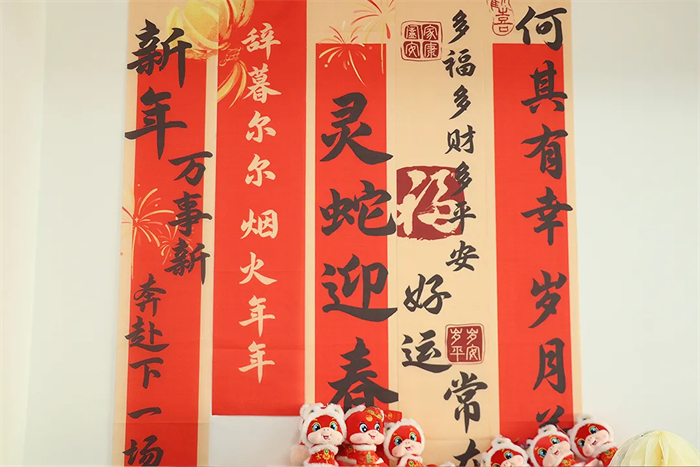 新年
万事新
奔赴下一场
辞暮尔尔 烟火年年
灵蛇迎春
多福多财多平安
好运常
福
岁岁平安
何其有幸 岁月